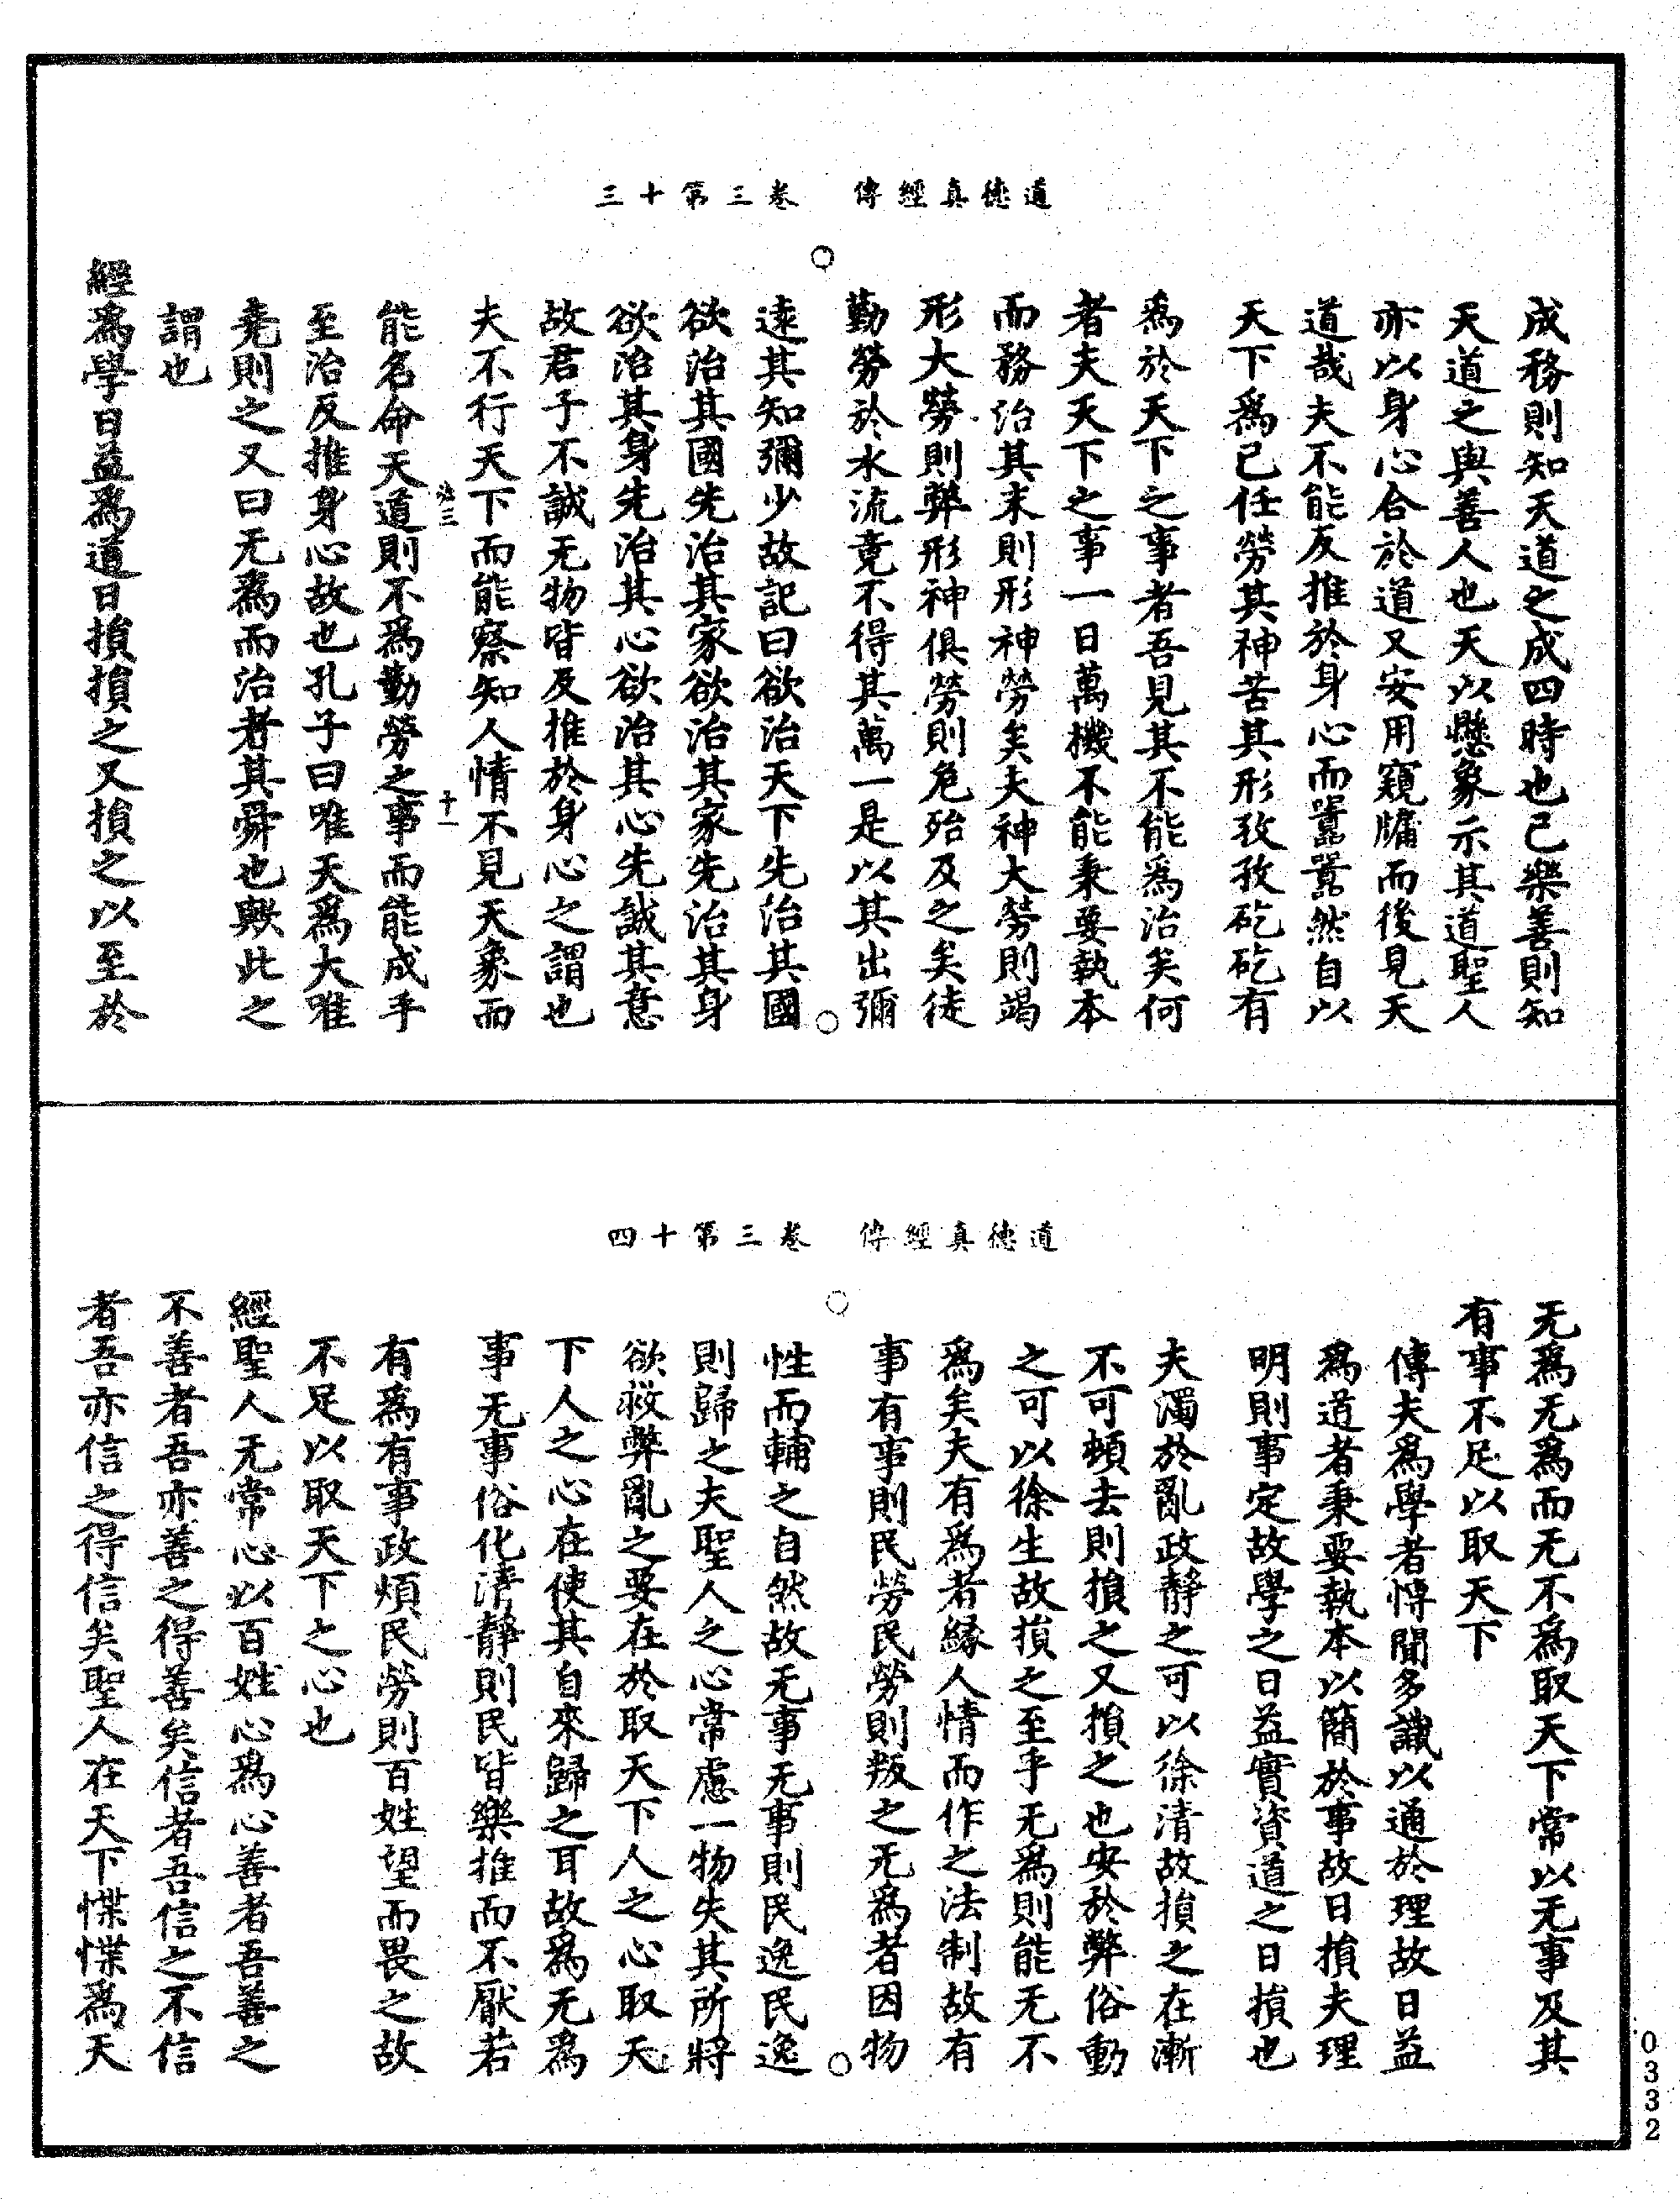 道德真經傳　卷三第十三
成務則知天道之成四時也已樂善則知
天道之與善人也天以懸象示其道聖人
亦以身心合於道又安用窺牖而後見天
道哉夫不能反推於身心而囂囂然自以
天下爲已任勞其神苦其形孜孜矻矻有
爲於天下之事者吾見其不能爲治矣何
者夫天下之事一日萬機不能秉要執本
而務治其末則形神勞矣夫神大勞則竭
形大勞則弊形神俱勞則危殆及之矣徒
勤勞於水流竟不得其萬一是以其出彌
遠其知彌少故記曰欲治天下先治其國
欲治其國先治其家欲治其家先治其身
欲治其身先治其心欲治其心先誠其意
故君子不誠无物皆反推於身心之謂也
夫不行天下而能察知人情不見天象而
能名命天道則不爲勤勞之事而能成乎
至治反推身心故也孔子曰唯天爲大唯
堯則之又曰无爲而治者其舜也歟此之
謂也
經爲學日益爲道日損損之又損之以至於
道德真經傳　卷三第十四
无爲无爲而无不爲取天下常以无事及其
有事不足以取天下
傳夫爲學者博聞多識以通於理故日益
爲道者秉要執本以簡於事故日損夫理
明則事定故學之日益實資道之日損也
夫濁於亂政靜之可以徐清故損之在漸
不可頓去則損之又損之也安於弊俗動
之可以徐生故損之至乎无爲則能无不
爲矣夫有爲者緣人情而作之法制故有
事有事則民勞民勞則叛之无爲者因物
性而輔之自然故无事无事則民逸民逸
則歸之夫聖人之心常慮一物失其所將
欲救弊亂之要在於取天下人之心取天
下人之心在使其自來歸之耳故爲无爲
事无事俗化清靜則民皆樂推而不厭若
有爲有事政煩民勞則百姓望而畏之故
不足以取天下之心也
經聖人无常心以百姓心爲心善者吾善之
不善者吾亦善之得善矣信者吾信之不信
者吾亦信之得信矣聖人在天下惵惵爲天
0332